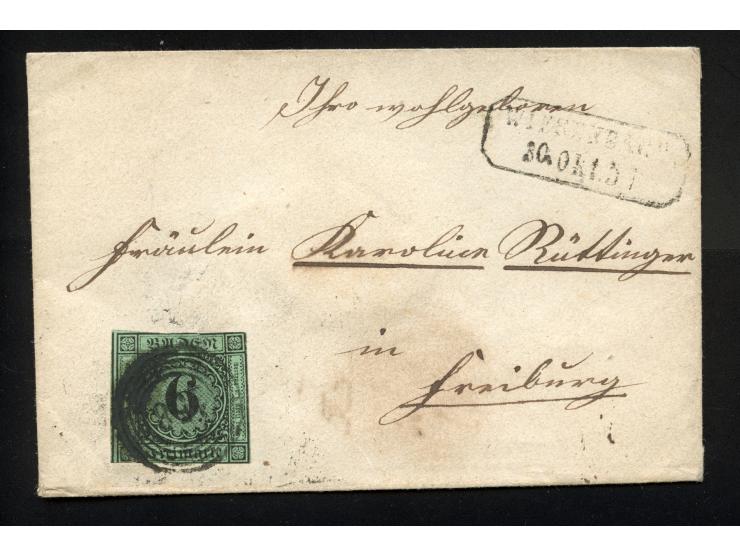 Ihro wohlgeboren
WIESENBACH
30. Okt. 51
Fräulein Karoline Rüttinger
in
Freiburg
BADEN
6
Freimarke